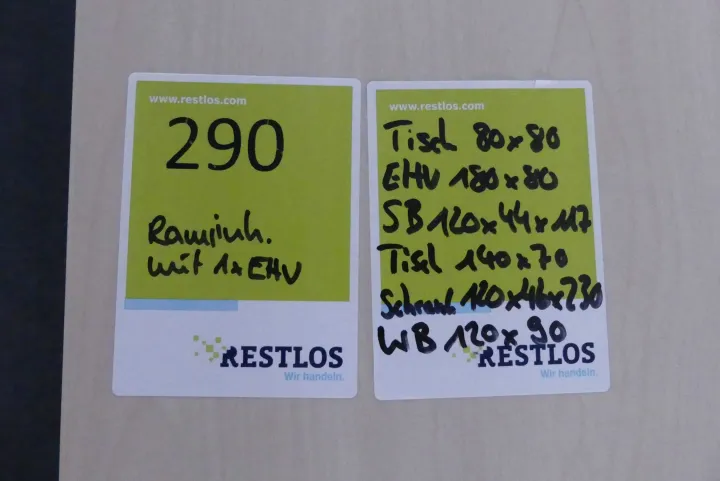 www.restlos.com
290
Rauminh.
mit 1x EHV
RESTLOS
Wir handeln.
www.restlos.com
Tisch 80x80
EHV 180x80
SB 120x44x117
Tisch 140x70
Schrank 120x46x230
WB 120x90
RESTLOS
Wir handeln.